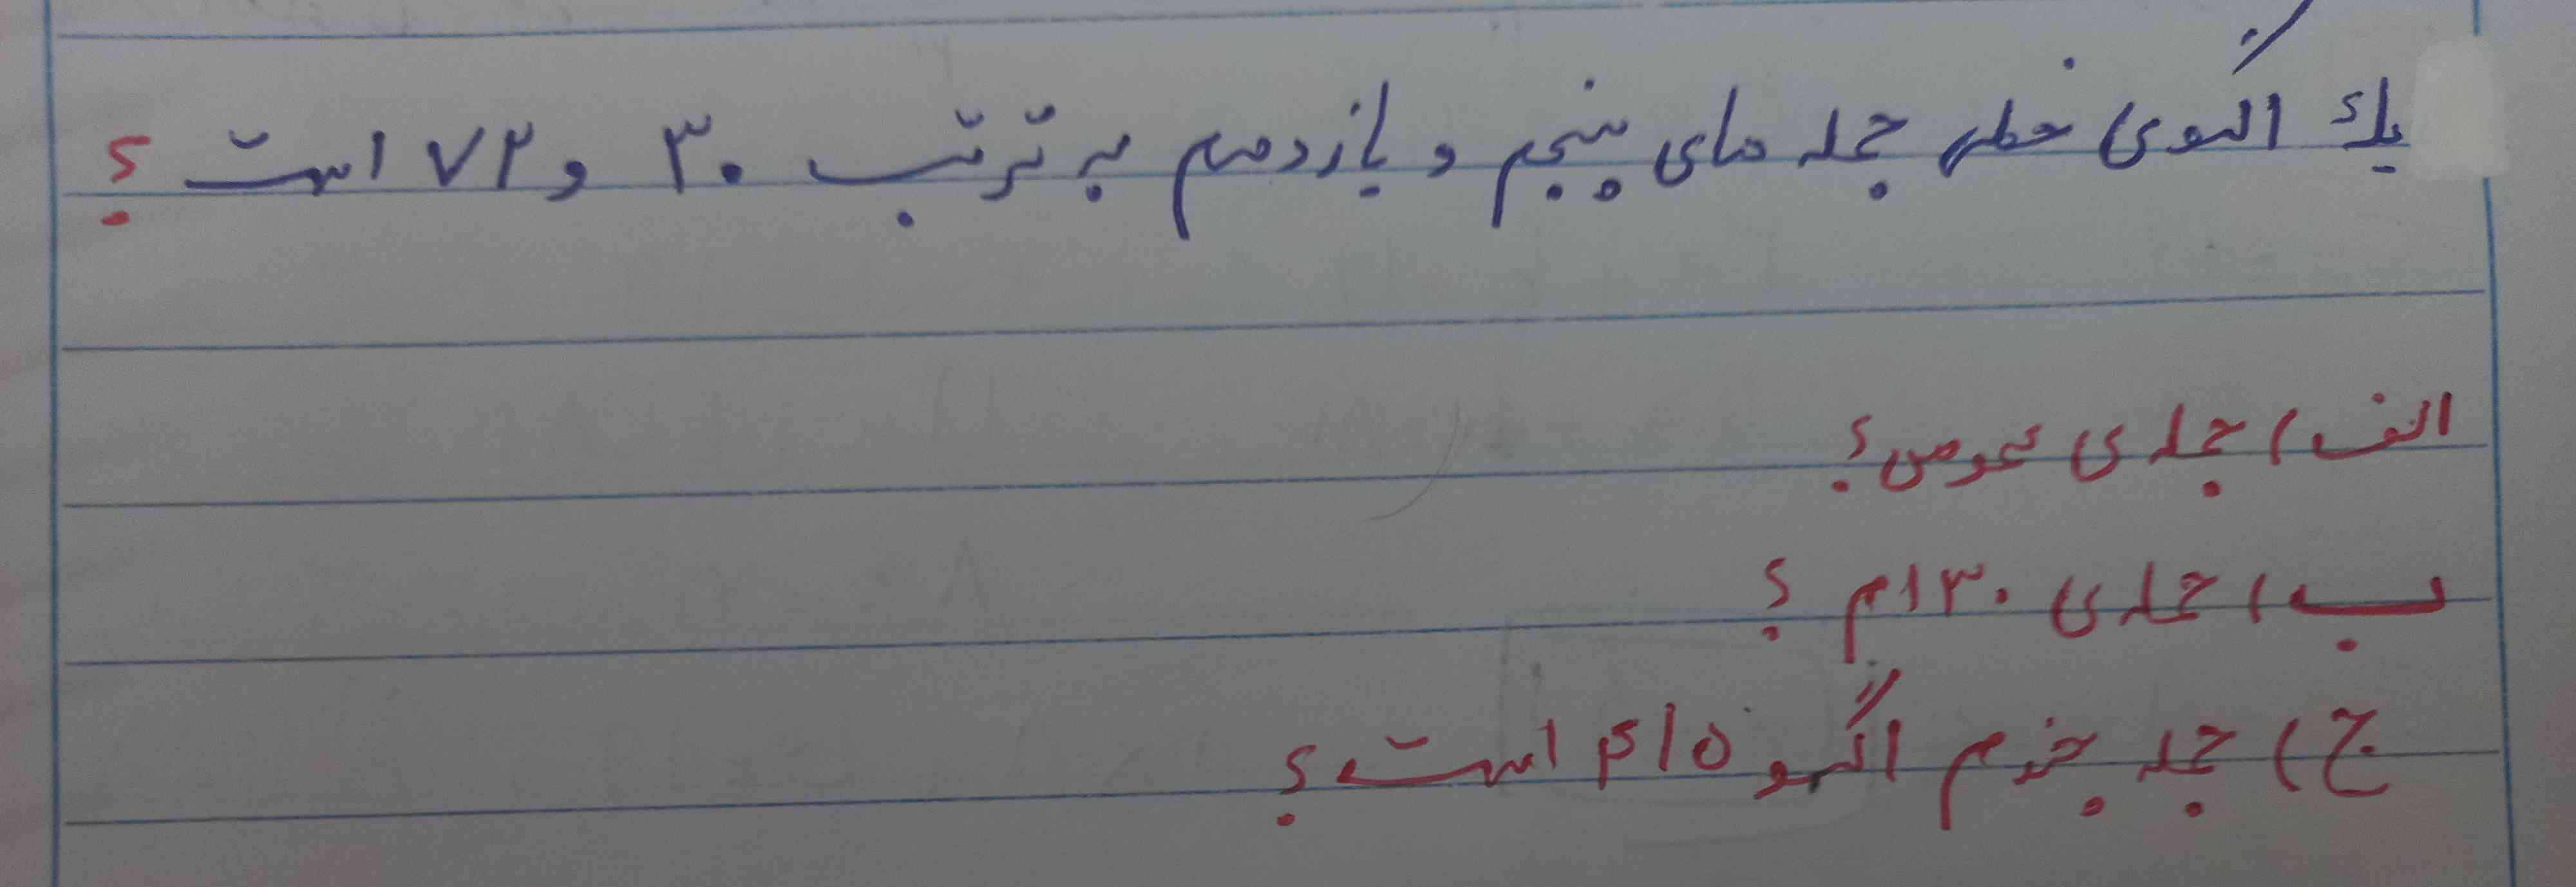 یک الگوی خطی جمله های پنجم و یازدهم به ترتیب ۳۰ و ۷۲ است ؟
الف) جمله ی عمومی؟
ب) جمله ی ۱۳۰م ؟
ج) جمله چندم الگو ۴۱۵ است ؟